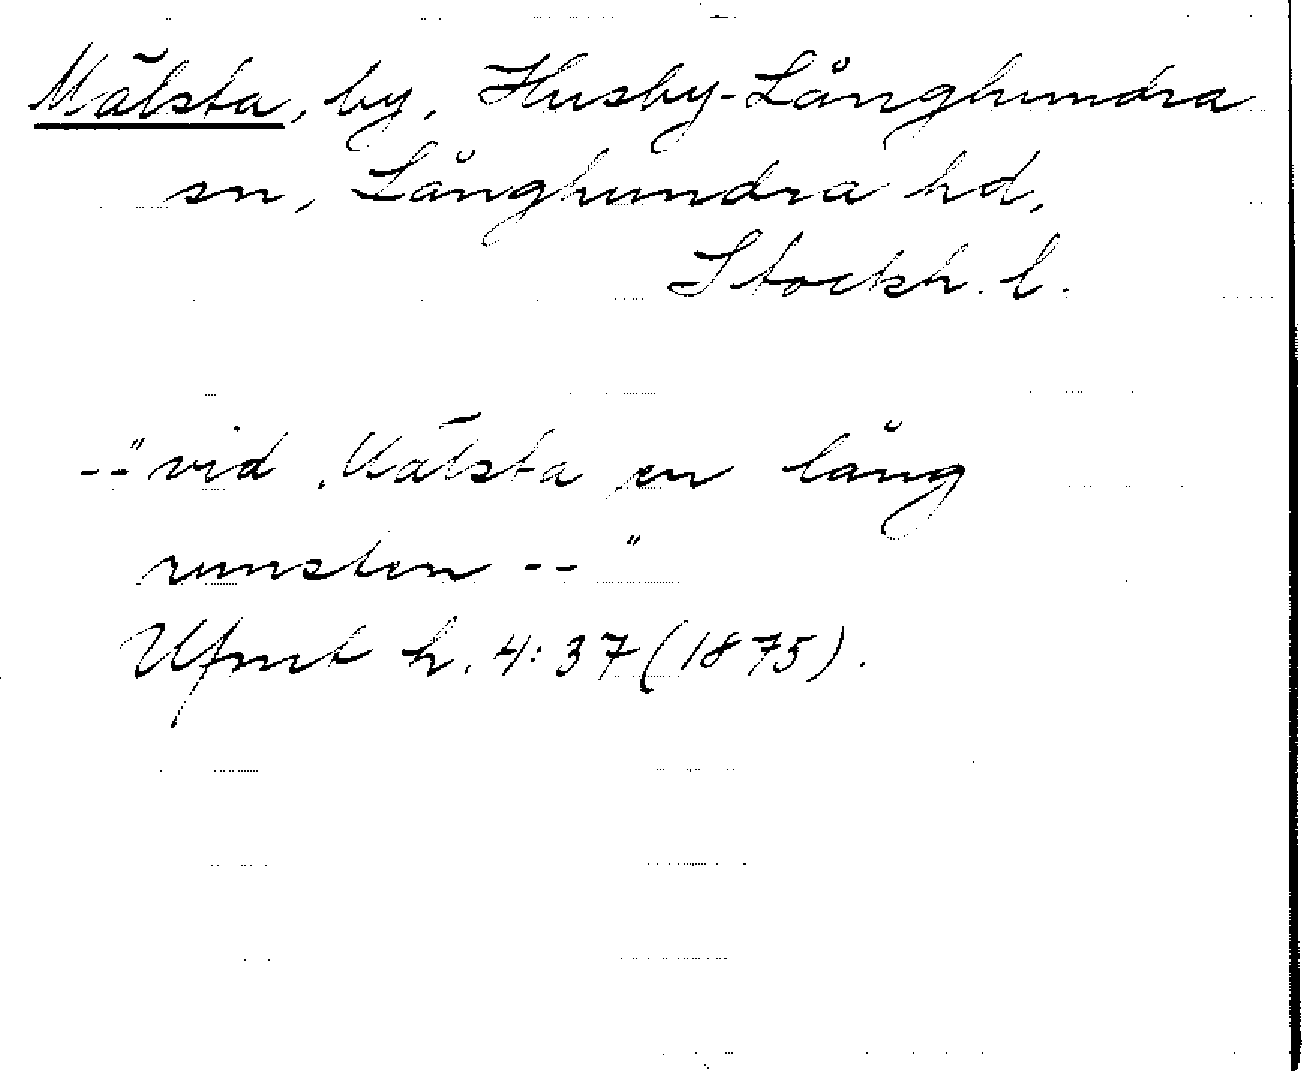 Mälsta, by, Husby-Långhundra
sn, Långhundra hd,
Stockh. l.
--"vid Mälsta en lång
runsten --"
Ufmt h. 4:37 (1875).